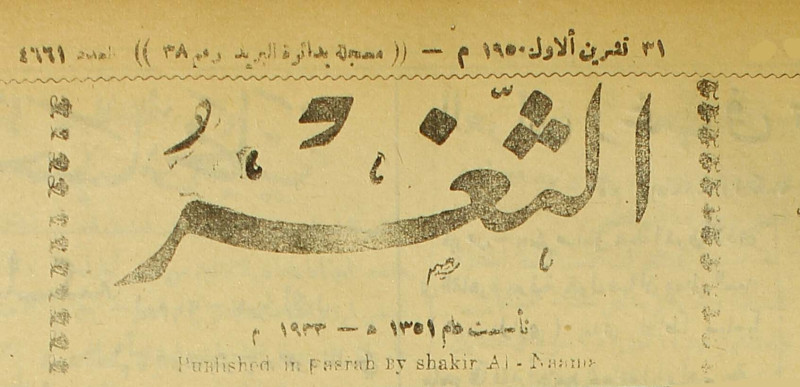 ٣١ تشرين ألاول ١٩٥٠ م — (( مسجلة بدائرة البريد رقم ٣٨ )) العدد ٤٦٦١
الثَّغْرُ
تأسست عام ١٣٥١ ه — ١٩٣٣ م
Published in Basrah By shakir Al - Naama